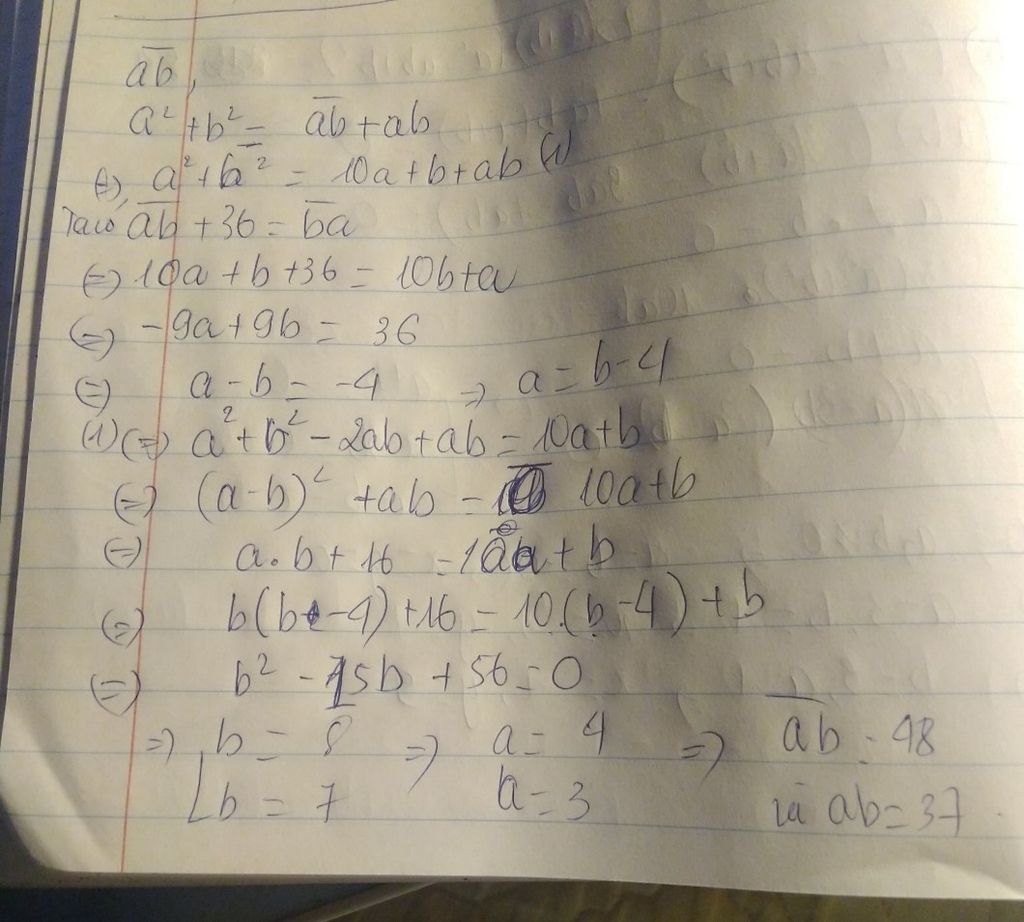 a̅b̅,
a² + b² = a̅b̅ + ab
⇔ a² + b² = 10a + b + ab (1)
Ta có a̅b̅ + 36 = b̅a̅
⇔ 10a + b + 36 = 10b + a
⇔ -9a + 9b = 36
⇔ a - b = -4 ⇒ a = b - 4
(1) ⇔ a² + b² - 2ab + ab = 10a + b
⇔ (a - b)² + ab = 10a + b
⇔ a.b + 16 = 10a + b
⇔ b(b - 4) + 16 = 10.(b - 4) + b
⇔ b² - 15b + 56 = 0
⇒ [ b = 8 ⇒ a = 4 ⇒ a̅b̅ = 48
b = 7 a = 3 và ab = 37.